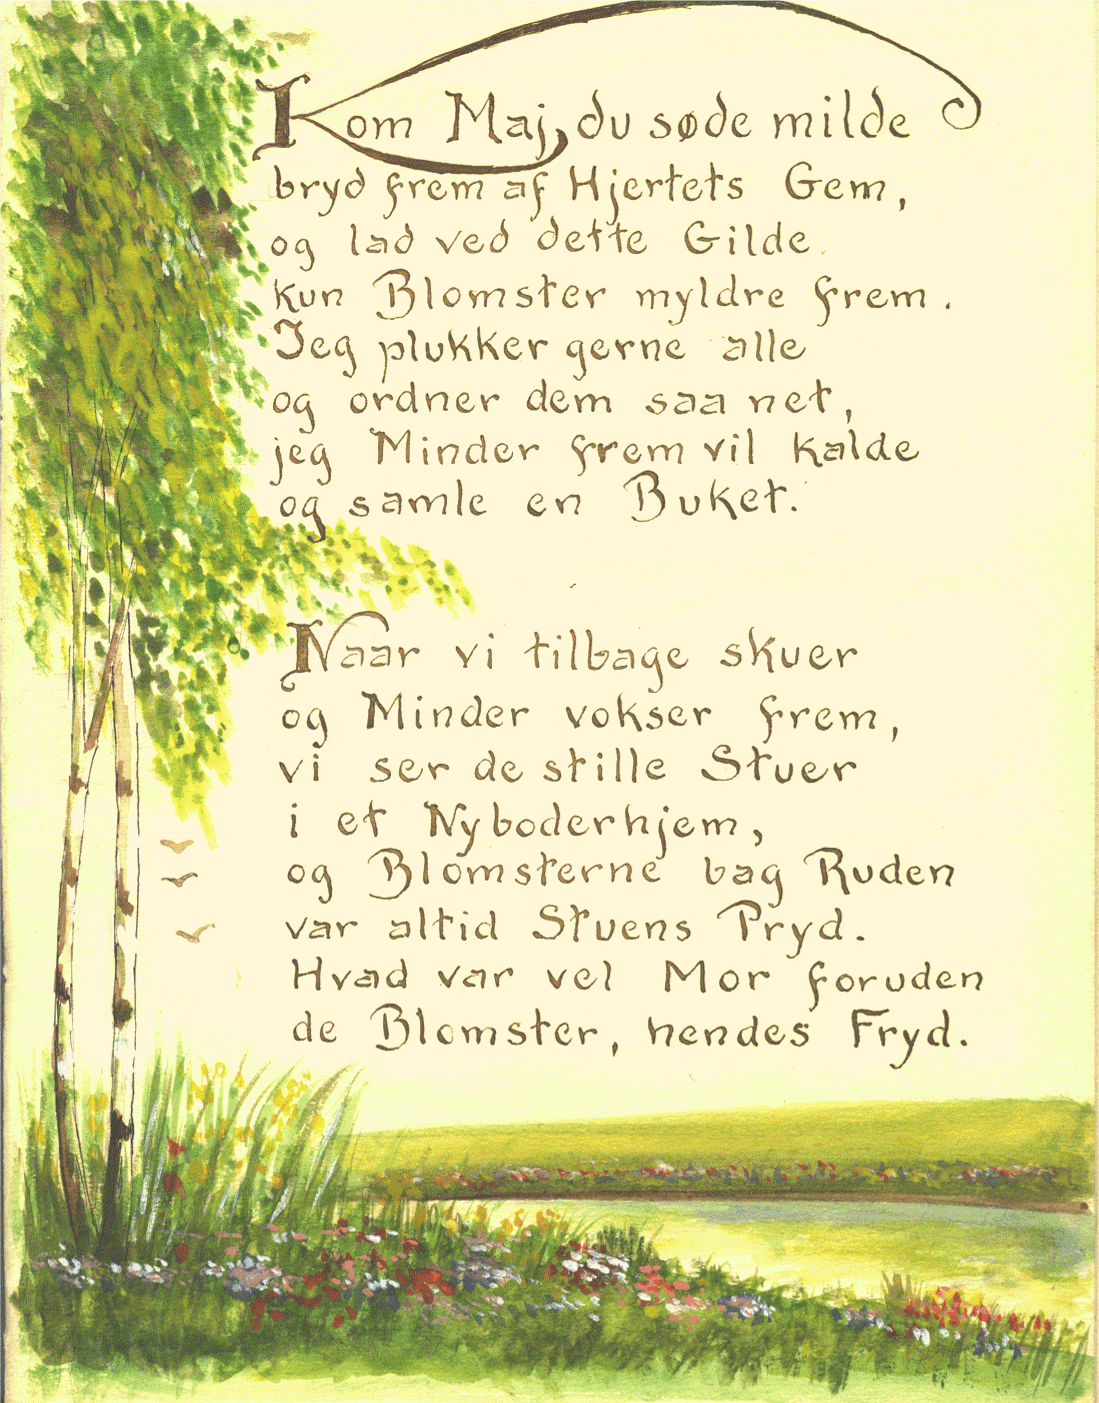 Kom Maj, du søde milde
bryd frem af Hjertets Gem,
og lad ved dette Gilde
kun Blomster myldre frem.
Jeg plukker gerne alle
og ordner dem saa net,
jeg Minder frem vil kalde
og samle en Buket.
Naar vi tilbage skuer
og Minder vokser frem,
vi ser de stille Stuer
i et Nyboderhjem,
og Blomsterne bag Ruden
var altid Stuens Pryd.
Hvad var vel Mor foruden
de Blomster, hendes Fryd.